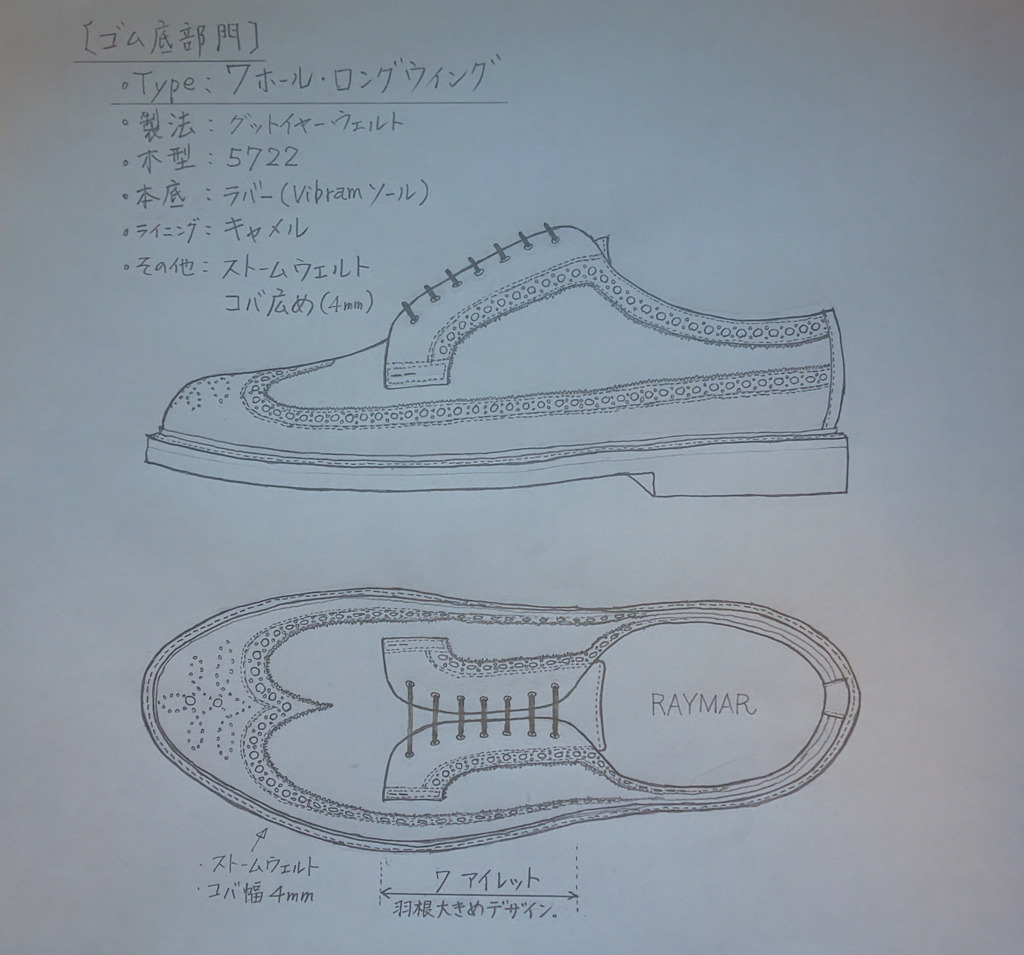 〔ゴム底部門〕
• Type: 7ホール・ロングウイング
• 製法：グットイヤーウェルト
• 木型：5722
• 本底：ラバー(Vibramソール)
• ライニング：キャメル
• その他：ストームウェルト
コバ広め(4mm)
RAYMAR
・ストームウェルト
・コバ幅4mm
7 アイレット
羽根大きめデザイン。